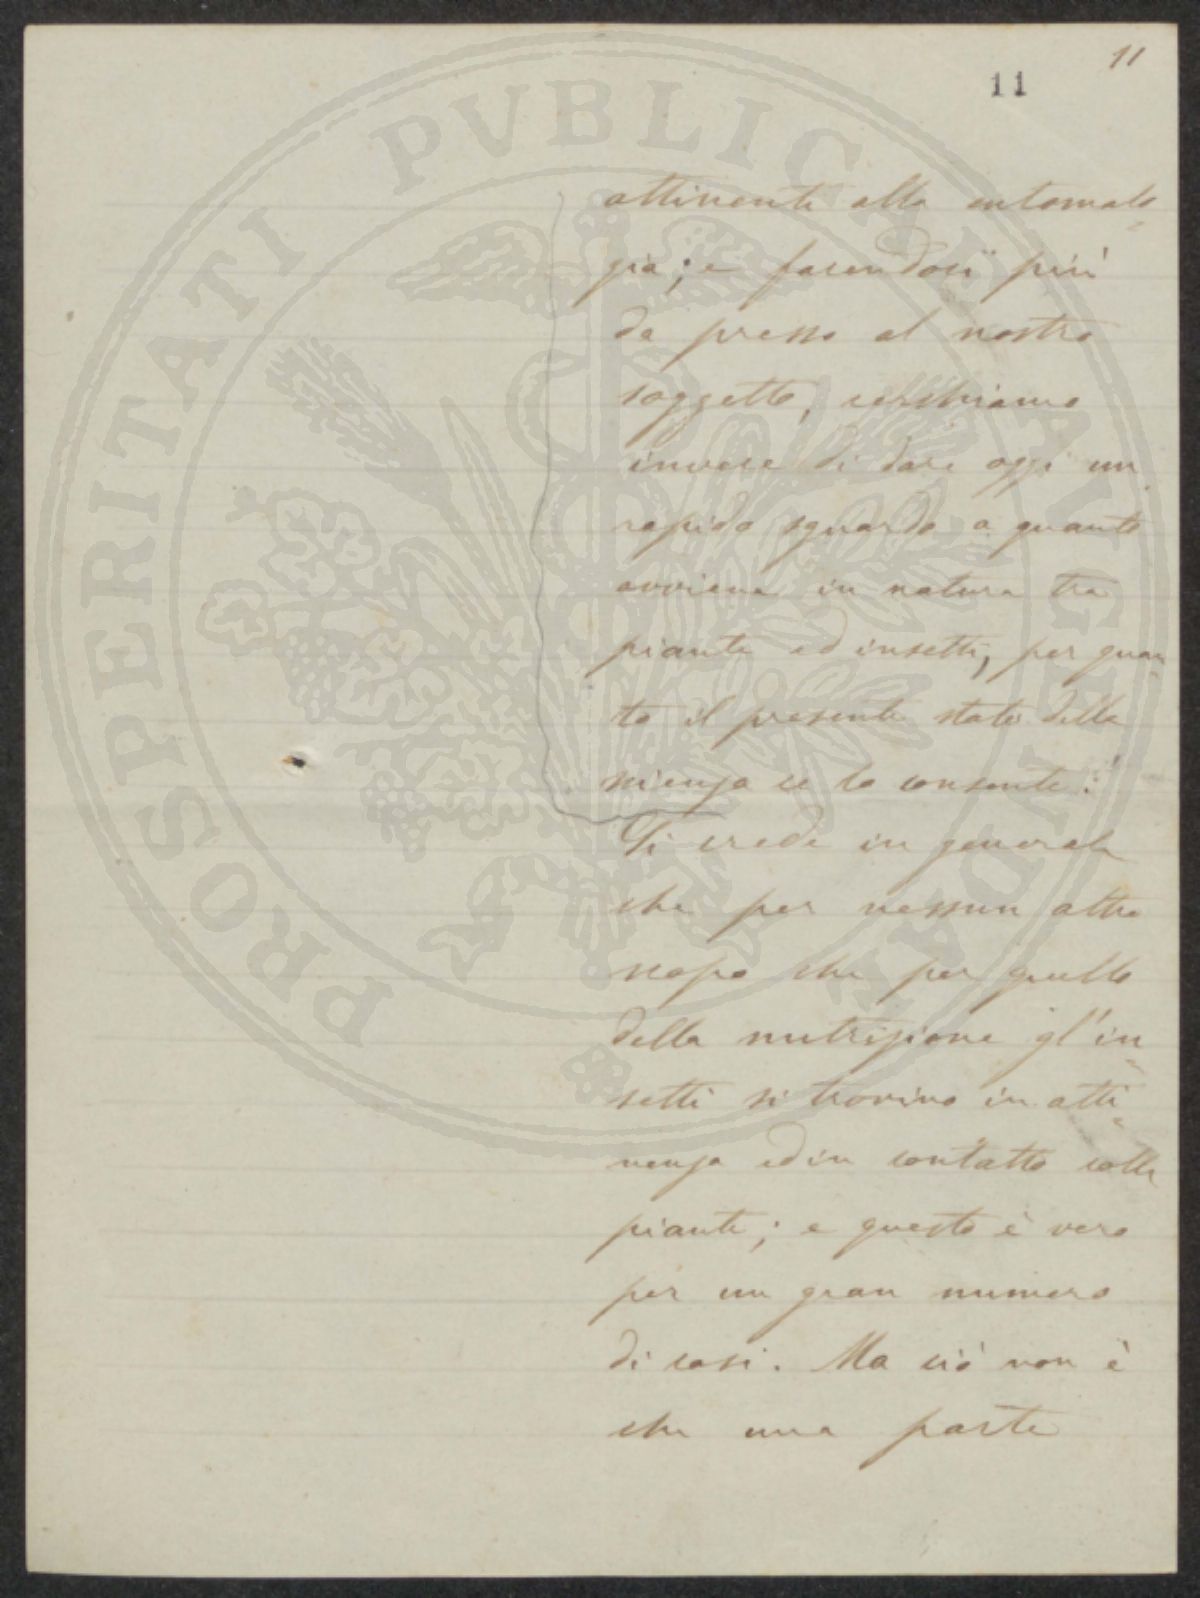 11
11
attinenti alla entomolo-
gia; e facendosi più
da presso al nostro
soggetto, cerchiamo
invece di dare oggi un
rapido sguardo a quanto
avviene in natura tra
piante ed insetti, per quan-
to il presente stato della
scienza ce lo consente.
Si crede in generale
che per nessun altro
scopo che per quello
della nutrizione gl'in-
setti si trovino in atti-
nenza ed in contatto colle
piante; e questo è vero
per un gran numero
di casi. Ma ciò non è
che una parte
PROSPERITATI PVBLICAE AVGENDAE